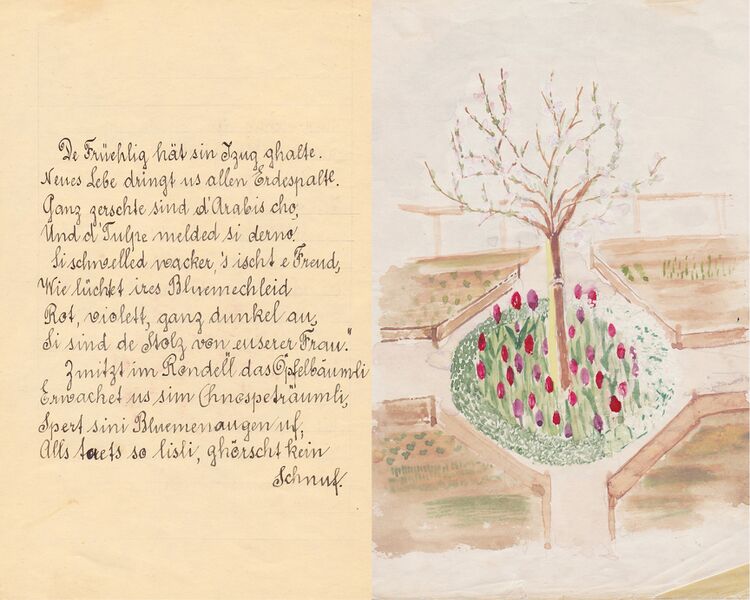 De Früehlig hät sin Izug ghalte.
Neues Lebe dringt us allen Erdespalte.
Ganz zerschte sind d'Arabis cho,
Und d'Tulpe melded si derno.
Si schwelled wacker, 's ischt e Freud,
Wie lüchtet ires Bluemechleid
Rot, violett, ganz dunkel au,
Si sind de Stolz von euserer Frau."
Zmitzt im Rondell das Öpfelbäumli
Erwachet us sim Chnospeträumli,
Spert sini Bluemenaugen uf,
Alls taets so lisli, ghörscht kein
Schnuf.